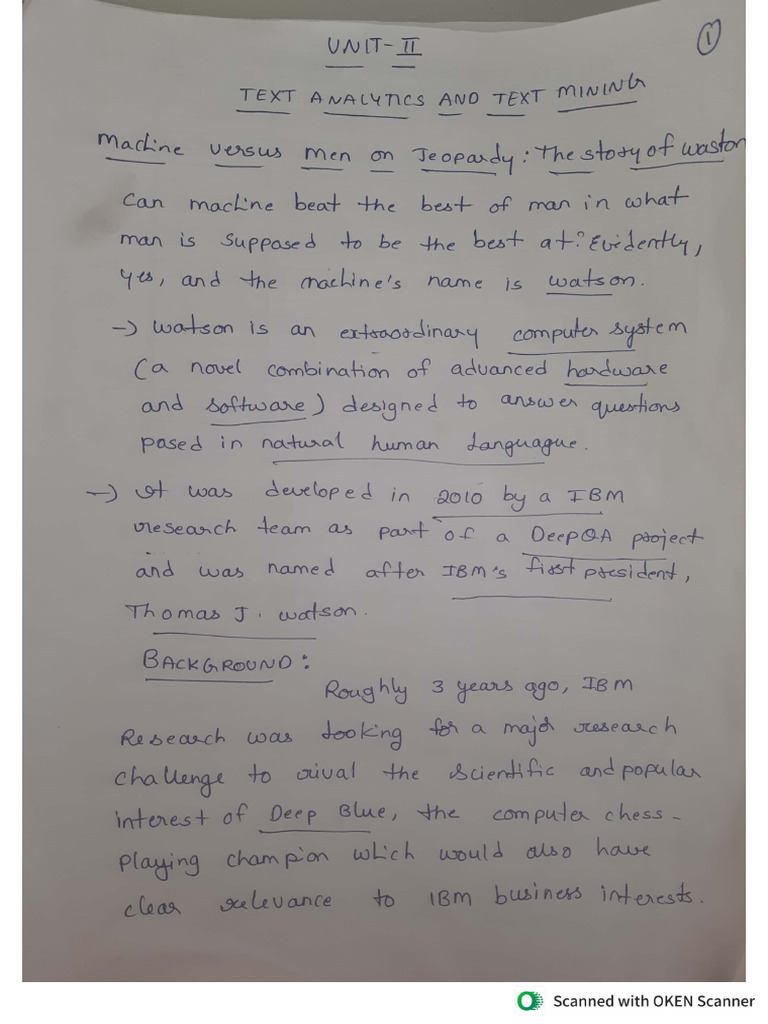 1
UNIT-II
TEXT ANALYTICS AND TEXT MINING
Machine versus men on Jeopardy: The story of waston
Can machine beat the best of man in what
man is supposed to be the best at? Evidently,
yes, and the machine's name is watson.
-> Watson is an extraordinary computer system
(a novel combination of advanced hardware
and software) designed to answer questions
posed in natural human languague.
-> It was developed in 2010 by a IBM
research team as part of a DeepQA project
and was named after IBM's first president,
Thomas J. watson.
BACKGROUND:
Roughly 3 years ago, IBM
Research was looking for a major research
challenge to rival the scientific and popular
interest of Deep Blue, the computer chess-
playing champion which would also have
clear relevance to IBM business interests.
Scanned with OKEN Scanner